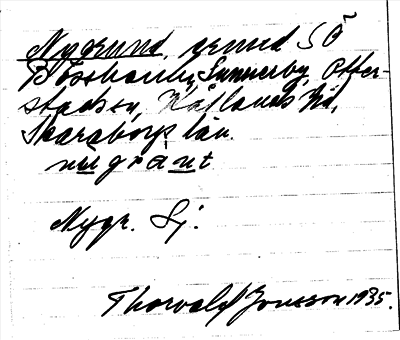 Nygrund, grund SÖ
Bösshamn, Sunnerby, Otter-
stads sn, Kållands hd,
Skaraborgs län.
nygrunt
Nygr. Sj.
Thorvald Jonsson 1935.